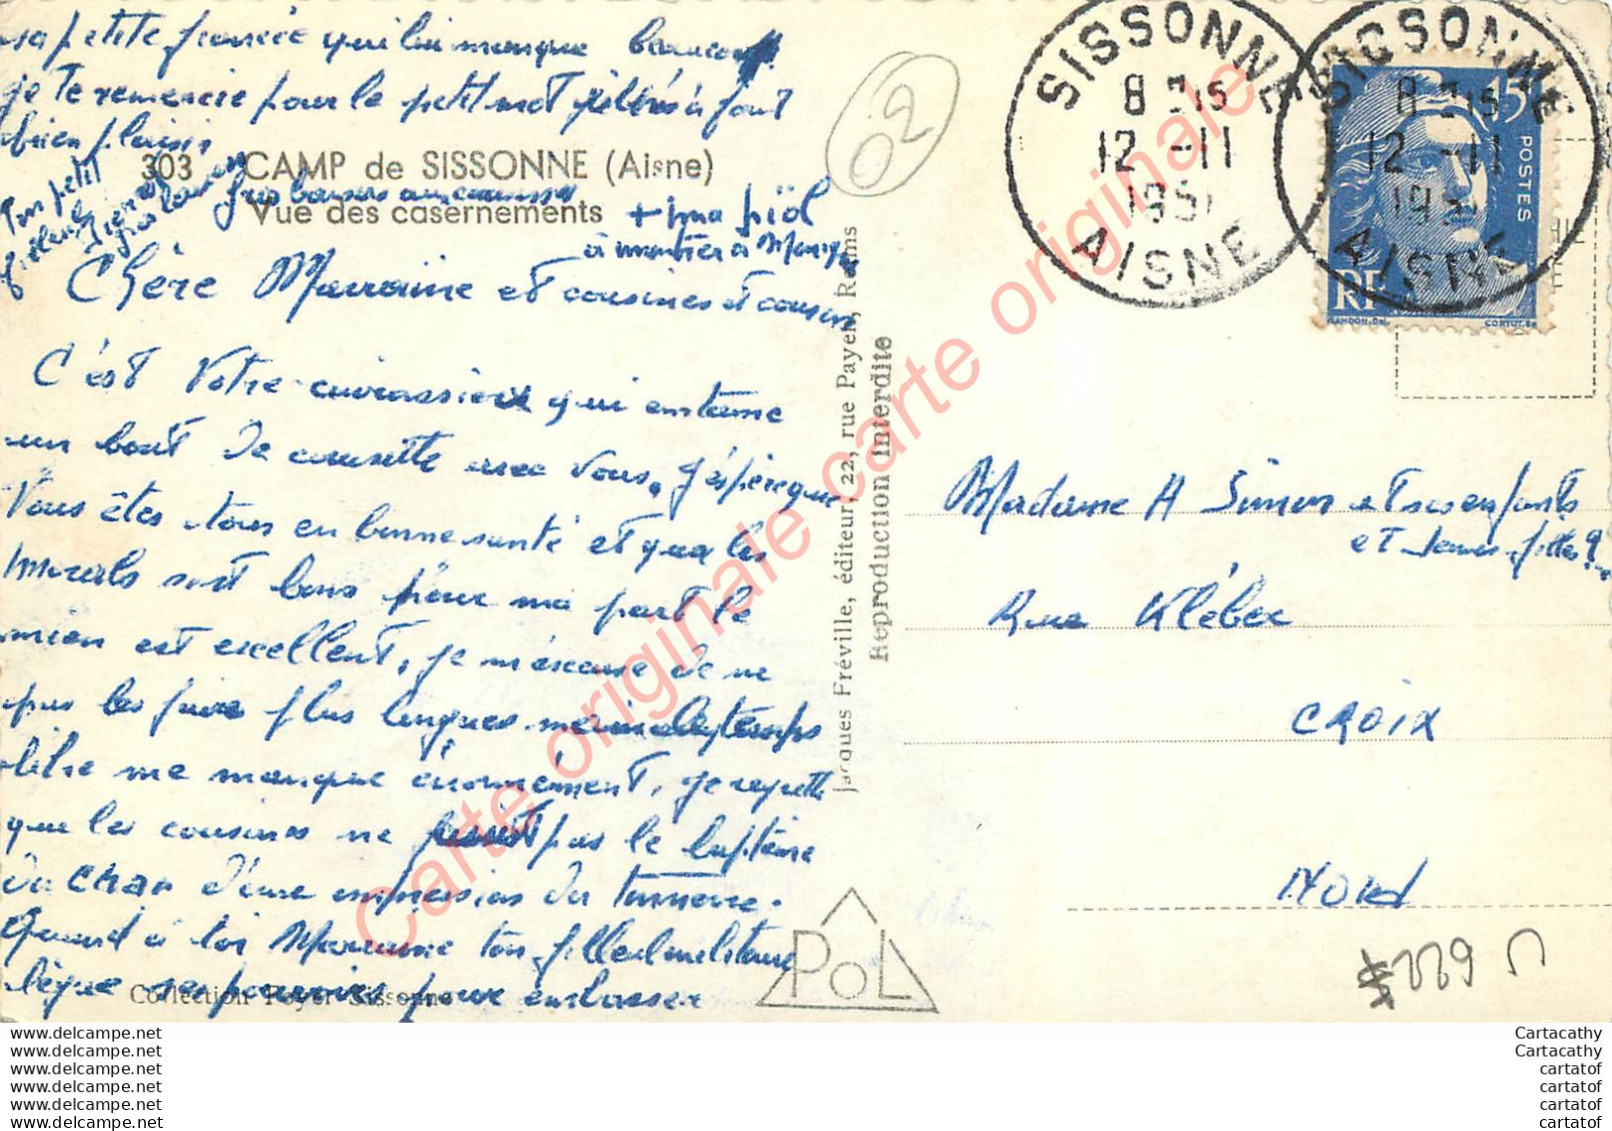 sa petite fiancée qui lui manque beaucoup
je te remercie pour le petit mot
bien plaisir
303 CAMP de SISSONNE (Aisne)
Vue des casernements
gros baisers aux cousines
Ton petit
+ 1
à Marcq
Chère Marraine et cousines et cousin
C'est Votre cuirassier qui entame
un bout de causette avec vous, j'espère que
Vous êtes tous en bonne santé et que les
morals sont bons pour ma part le
mien est excellent, je m'excuse de ne
pas les faire plus longues mais le temps
libre me manque énormément, je regrette
que les cousines ne pas le baptême
du char d'une
Quand à toi Marraine ton filleul militaire
lègue ses pouvoirs pour embrasser
Collection Foyer Sissonne
Jacques Fréville, éditeur, 22, rue Payen, Reims
Reproduction Interdite
POL
02
SISSONNE
8 H 15
12 -11
1951
AISNE
SISSONNE
8 H 15
12 -11
1951
AISNE
15F
POSTES
RF
GANDON-Del.
CORTOT-Sc
Madame A Simon et ses enfants
et jeunes filles
Rue Kléber
CROIX
NORD
Carte originale carte originale carte originale
www.delcampe.net
www.delcampe.net
www.delcampe.net
www.delcampe.net
www.delcampe.net
www.delcampe.net
Cartacathy
Cartacathy
cartatof
cartatof
cartatof
cartatof